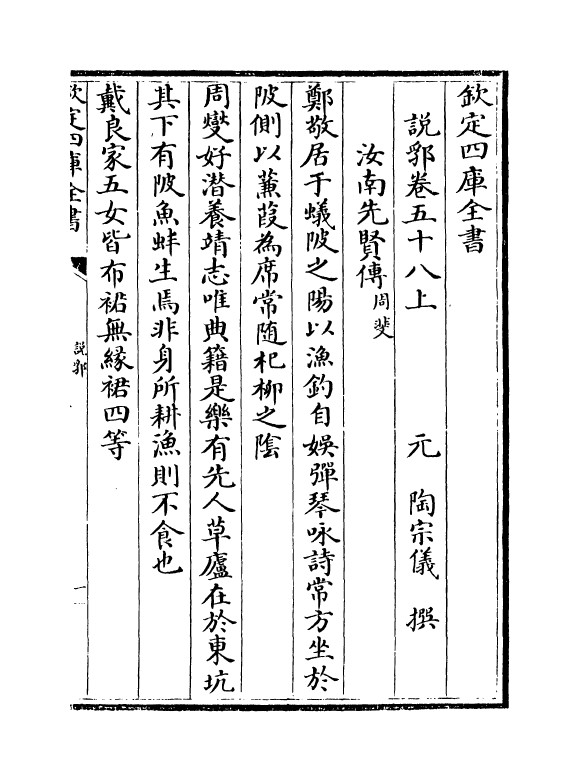 欽定四庫全書
說郛卷五十八上　　元　陶宗儀　撰
汝南先賢傳周斐
鄭敬居于蟻陂之陽以漁釣自娛彈琴咏詩常方坐於
陂側以蒹葭為席常随杞柳之陰
周燮好潜養靖志唯典籍是樂有先人草廬在於東坑
其下有陂魚蚌生焉非身所耕漁則不食也
戴良家五女皆布裙無緣裙四等
欽定四庫全書
說郛
一